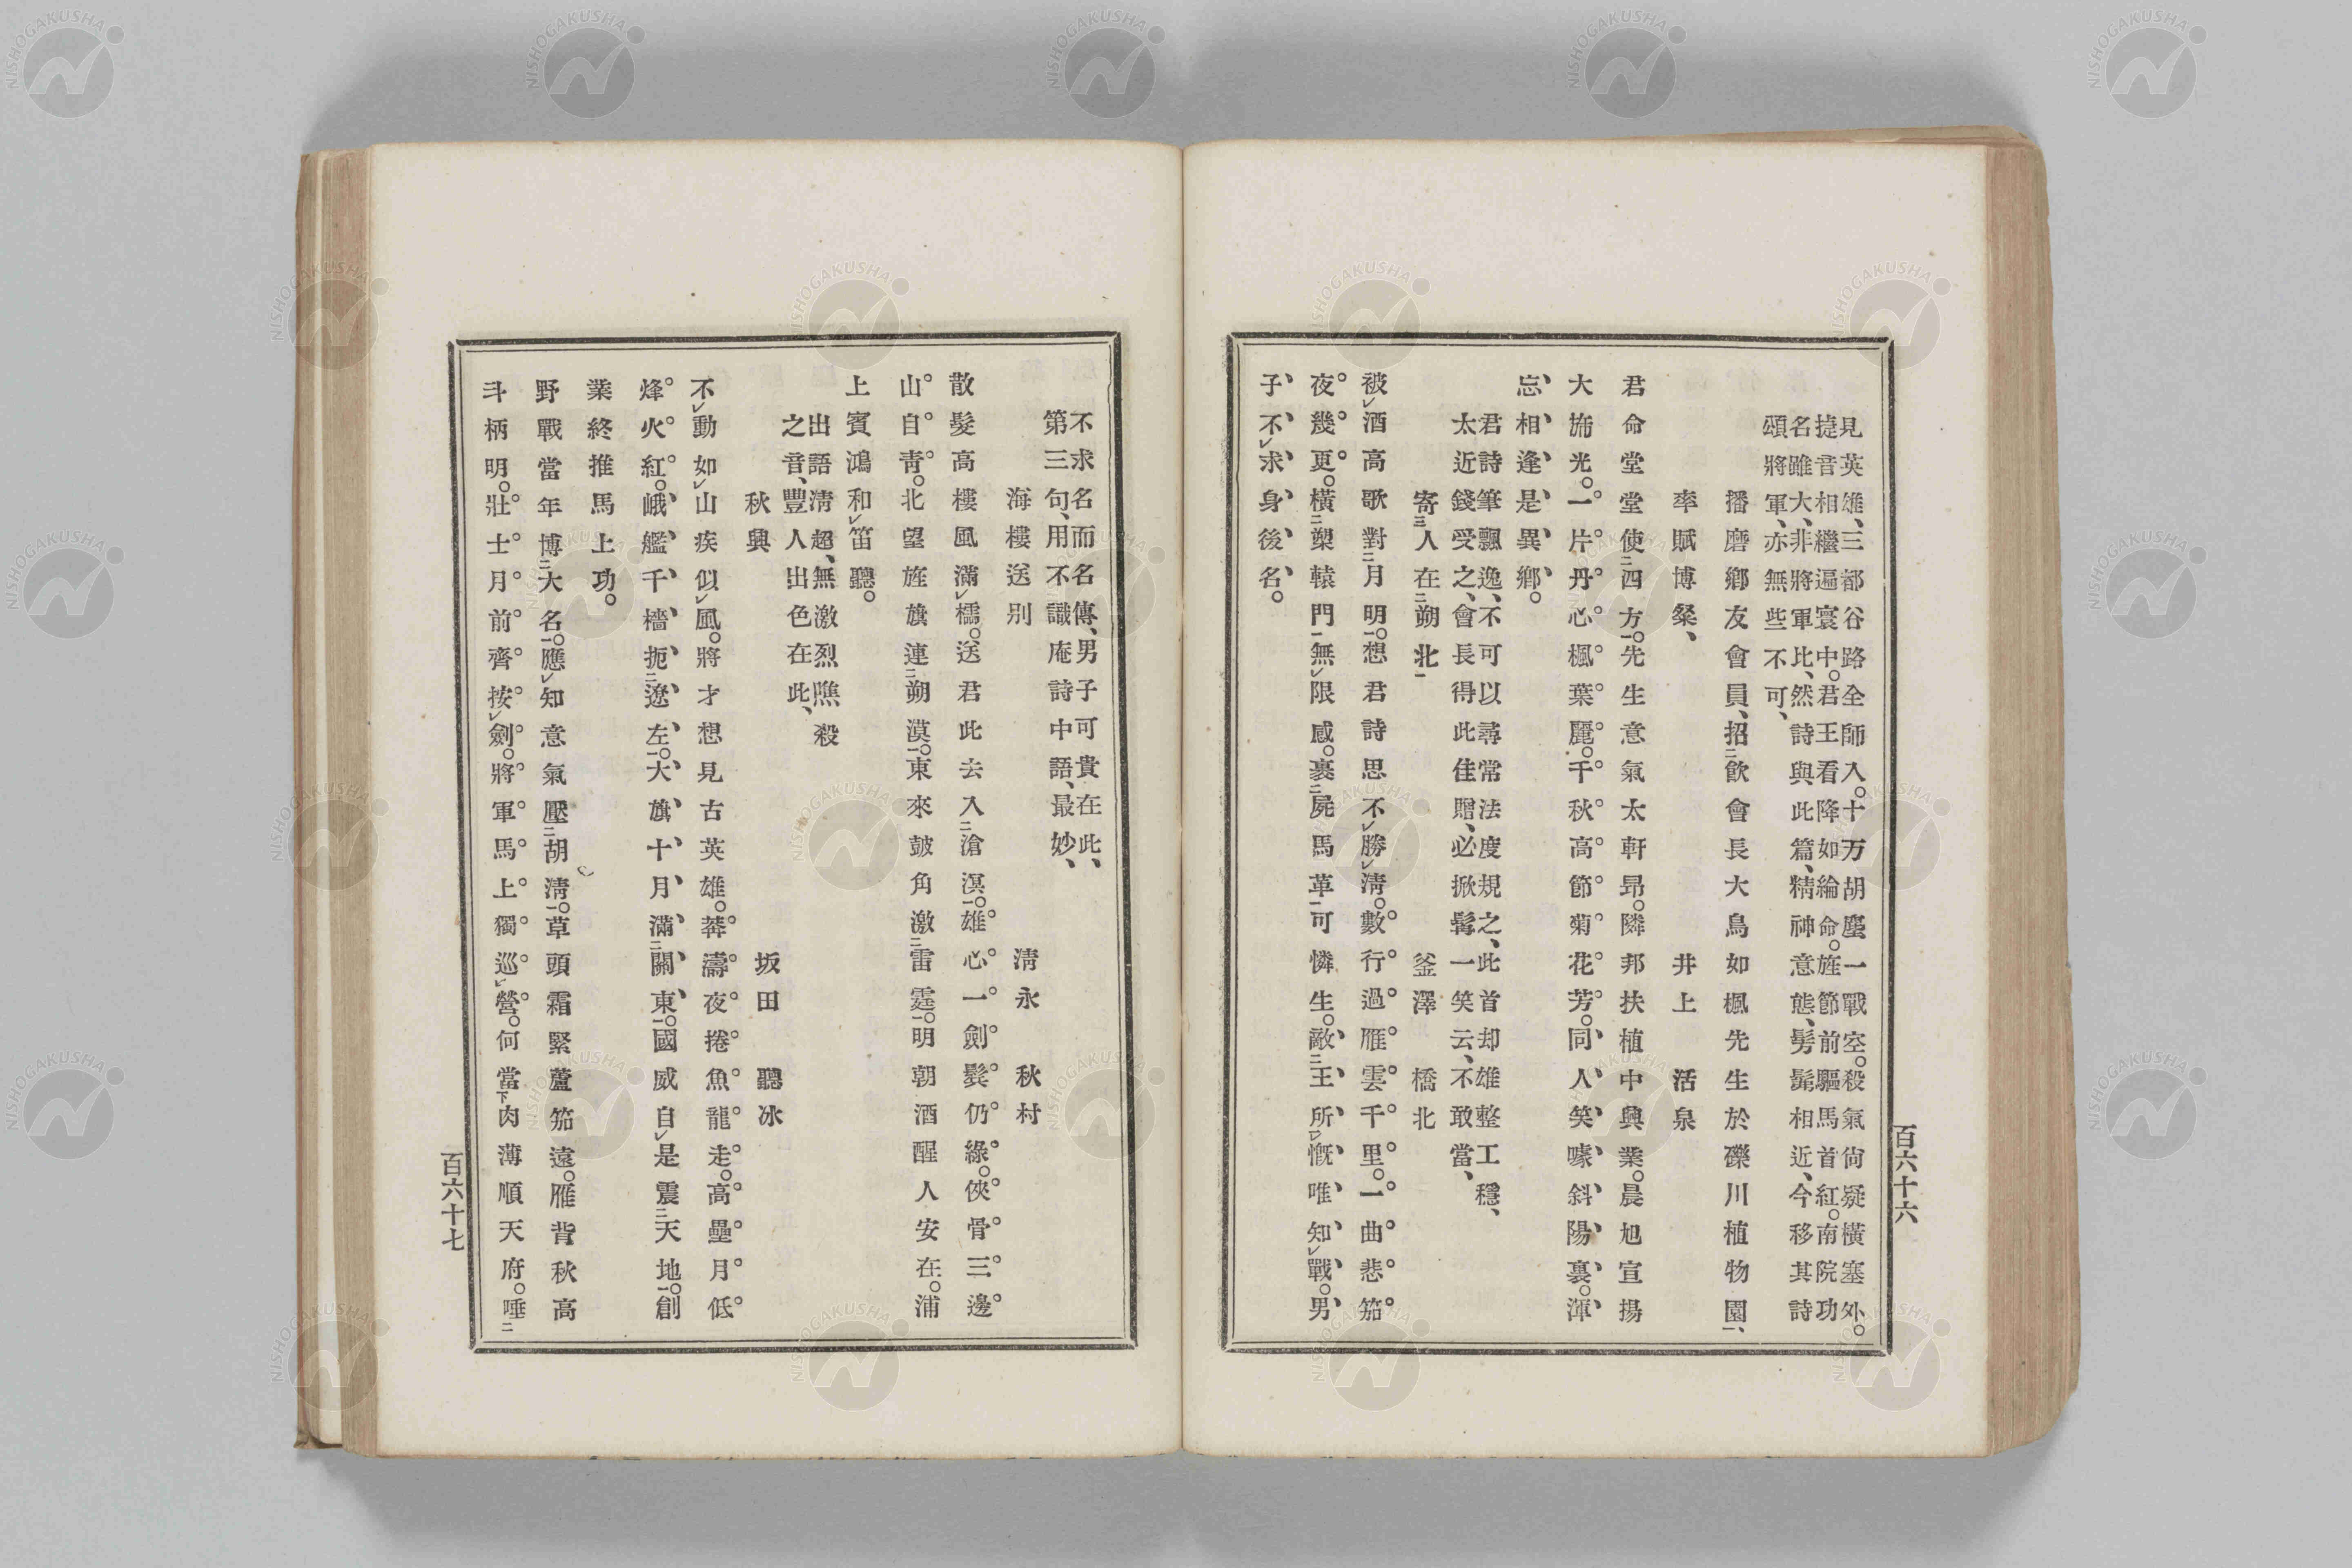 見英雄、三都谷路全師入。十万胡塵一戰空。殺氣尙疑橫塞外。
捷音相繼遍寰中。君王看降如綸命。旌節前驅馬首紅。南院功
名雖大、非將軍比、然詩與此篇、精神意態、髣髴相近、今移其詩
頌將軍、亦無些不可、
播磨鄕友會員、招飮會長大鳥如楓先生於礫川植物園、
率賦博粲、
井上活泉
君命堂堂使四方。先生意氣太軒昂。隣邦扶植中興業。晨旭宣揚
大旆光。一片丹心楓葉麗。千秋高節菊花芳。同人笑噱斜陽裏。渾
忘相逢是異鄕。
君詩筆飄逸、不可以尋常法度規之、此首却雄整工穩、
太近錢受之、會長得此佳贈、必掀髯一笑云、不敢當、
寄人在朔北
釜澤橋北
被酒高歌對月明。想君詩思不勝淸。數行過雁雲千里。一曲悲笳
夜幾更。橫槊轅門無限感。裹屍馬革可憐生。敵王所愾唯知戰。男
子不求身後名。
百六十六
不求名而名傳、男子可貴在此、
第三句、用不識庵詩中語、最妙、
海樓送別
淸永秋村
散髮高樓風滿櫺。送君此去入滄溟。雄心一劍鬂仍綠。俠骨三邊
山自靑。北望旌旗連朔漠。東來鼓角激雷霆。明朝酒醒人安在。浦
上賓鴻和笛聽。
出語淸超、無激烈噍殺
之音、豐人出色在此、
秋興
坂田聽冰
不動如山疾似風。將才想見古英雄。莽濤夜捲魚龍走。高壘月低
烽火紅。峨艦千檣扼遼左。大旗十月滿關東。國威自是震天地。創
業終推馬上功。
野戰當年博大名。應知意氣壓胡淸。草頭霜緊蘆笳遠。雁背秋高
斗柄明。壯士月前齊按劍。將軍馬上獨巡營。何當肉薄順天府。唾
百六十七